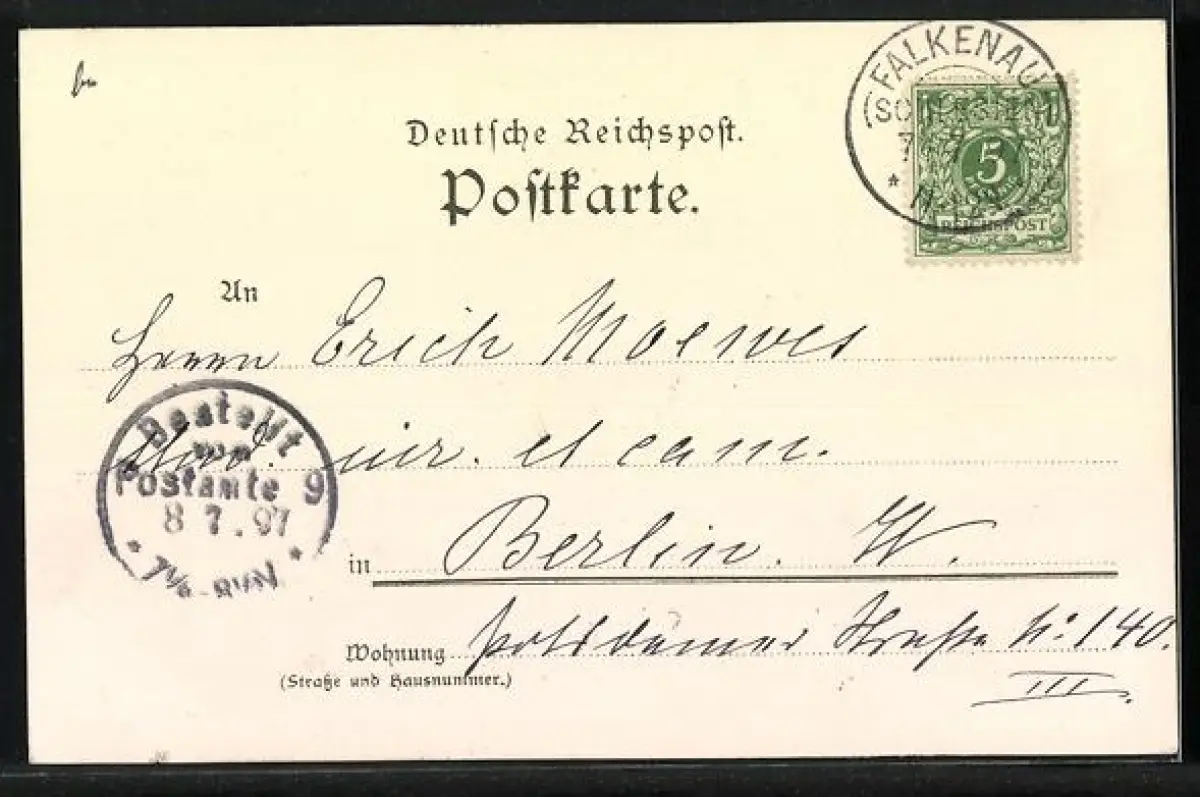 FALKENAU
(SCHLESIEN)
5
REICHSPOST
Deutsche Reichspost.
Postkarte.
An
Herrn Erich Moewes
Stud. jur. et cam.
Bestellt
vom
Postamte 9
8 7. 97
in Berlin. W.
Wohnung Potsdamer Straße No: 140.
(Straße und Hausnummer.)
III.